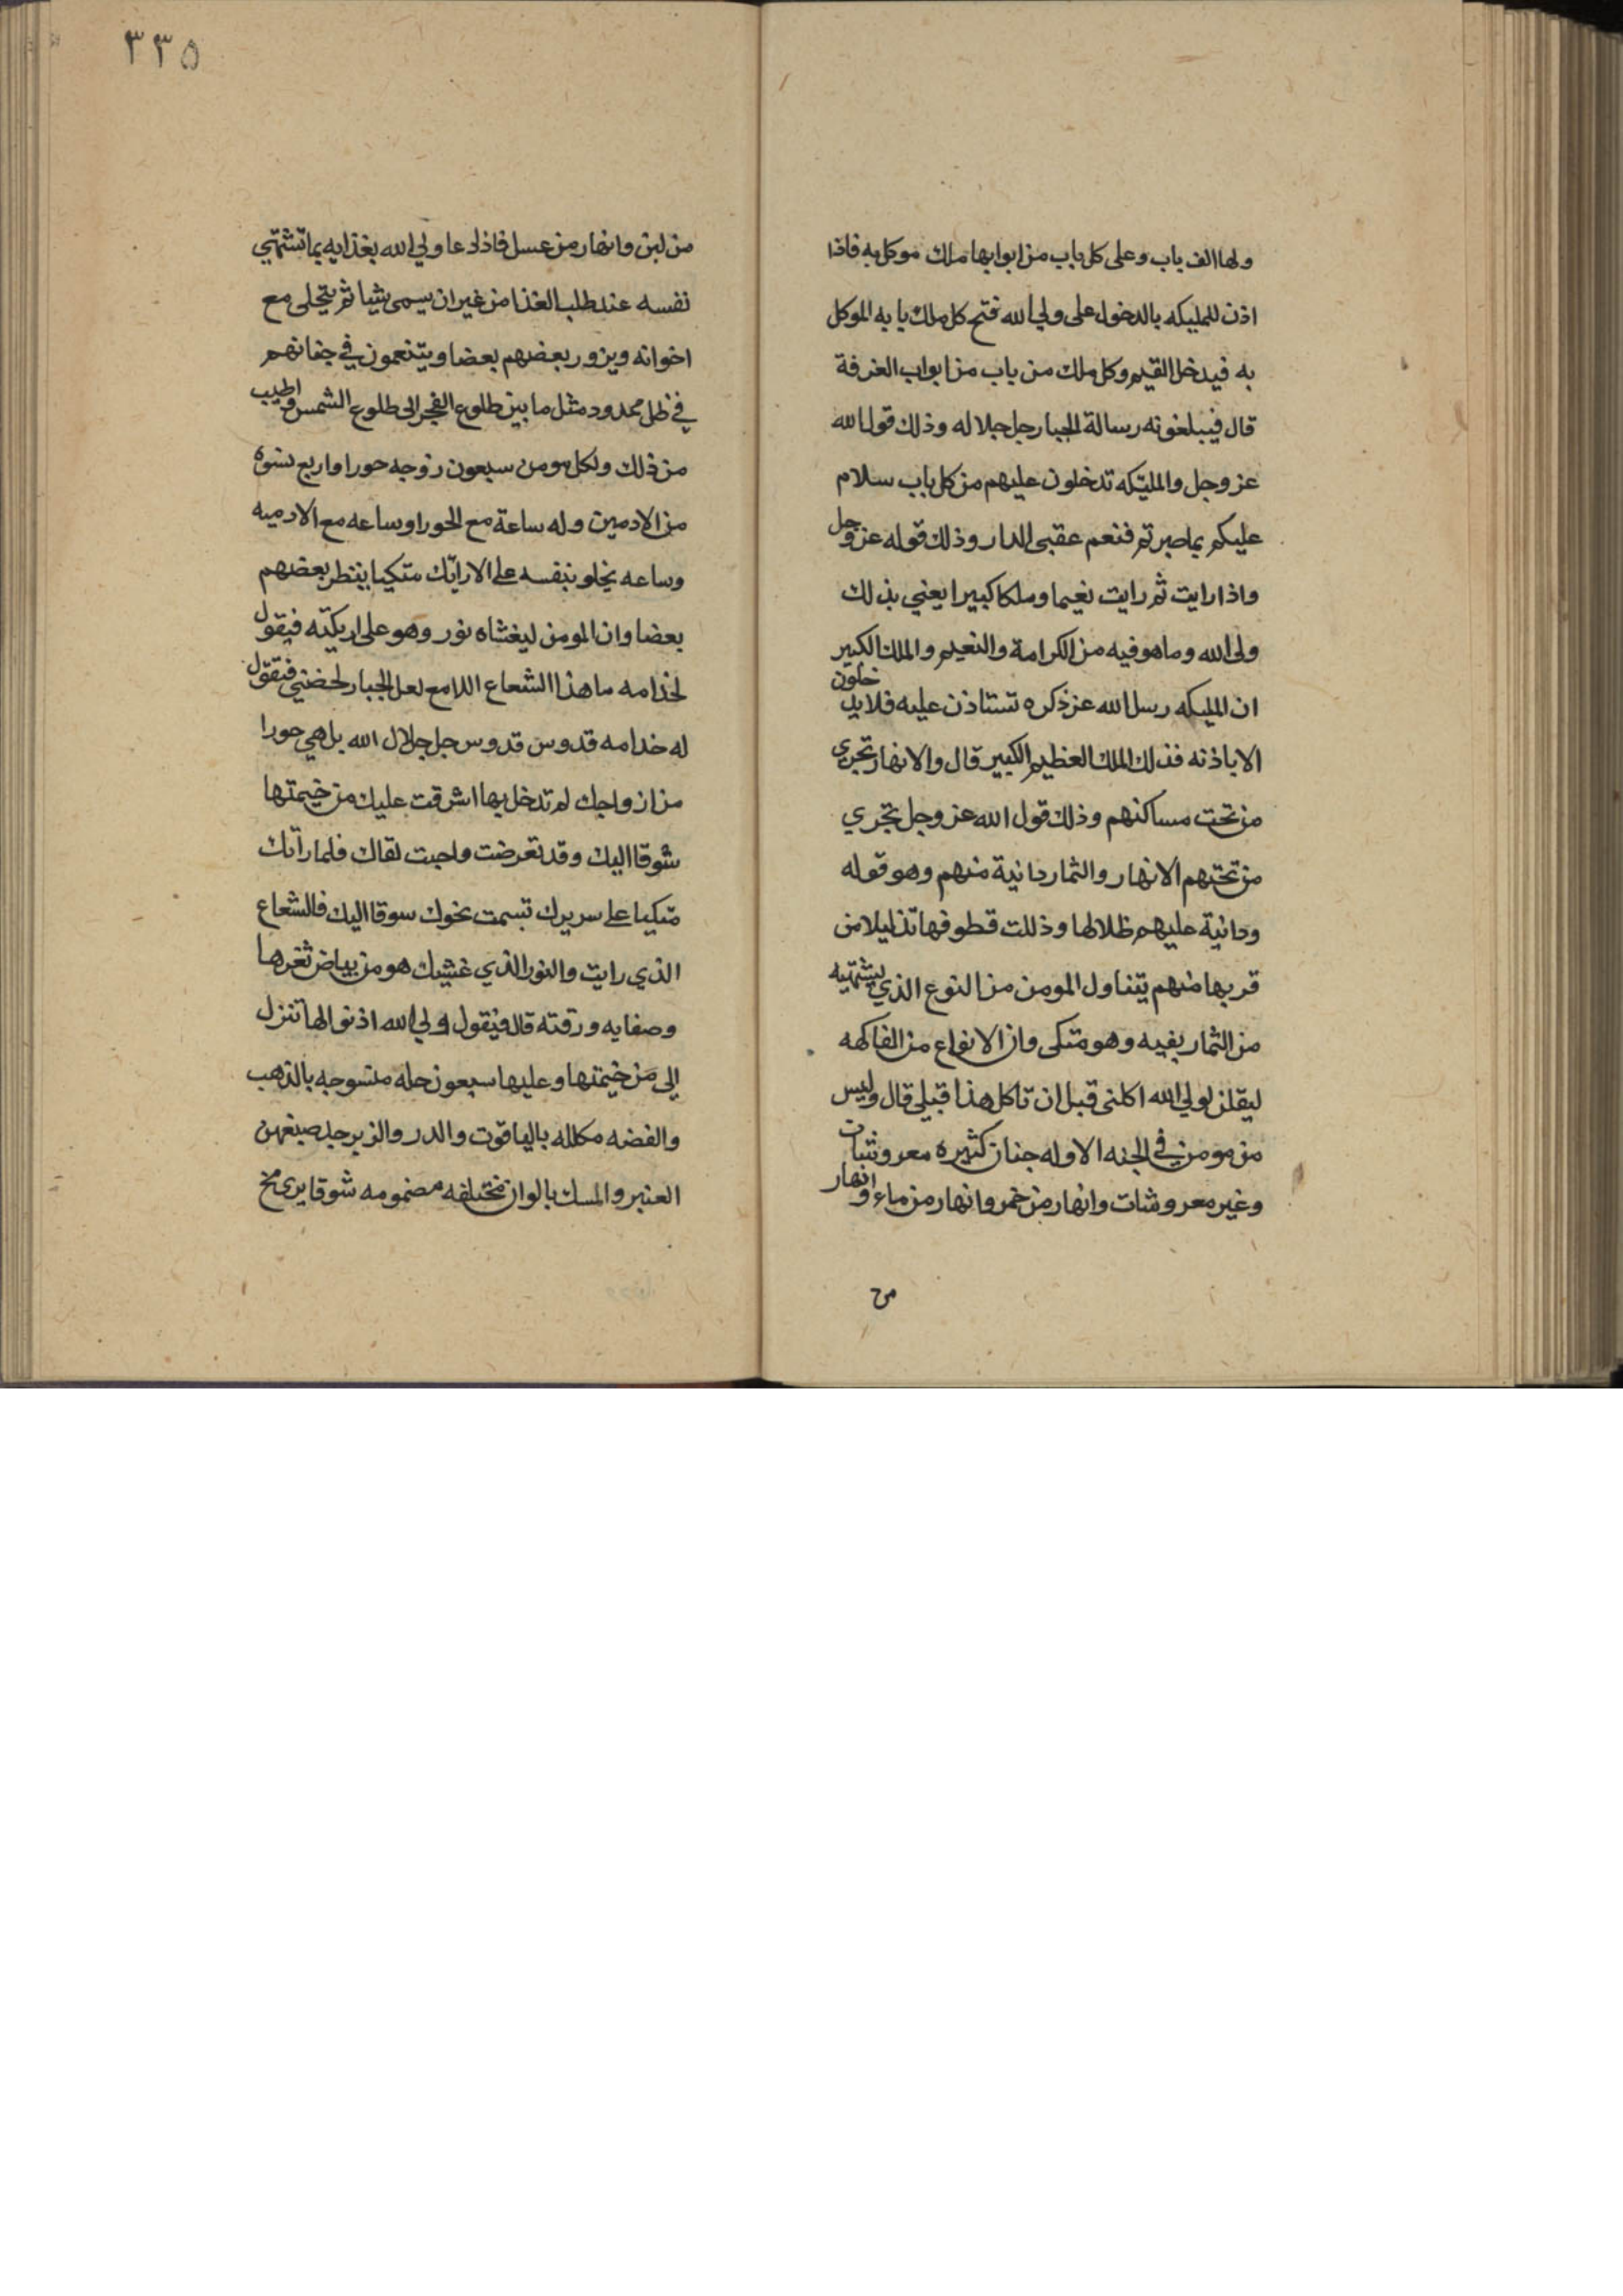 ولها الف باب وعلى كل باب من ابوابها ملك موكل به فاذا
اذن للمليكه بالدخول على ولي الله فتح كل ملك بابه الموكل
به فيدخل القيم وكل ملك من باب من ابواب الغرفة
قال فيبلغونه رسالة الجبار جل جلاله وذلك قول الله
عز وجل والمليكه تدخلون عليهم من كل باب سلام
عليكم بما صبرتم فنعم عقبى الدار وذلك قوله عز وجل
واذا رايت ثم رايت نعيما وملكا كبيرا يعني بذلك
ولى الله وما هو فيه من الكرامة والنعيم والملك الكبير
ان المليكه رسل الله عز ذكره تستاذن عليه فلا يدخلون
الا باذنه فذلك الملك العظيم الكبير قال والانهار تجرى
من تحت مساكنهم وذلك قول الله عز وجل تجري
من تحتهم الانهار والثمار دانية منهم وهو قوله
ودانية عليهم ظلالها وذللت قطوفها تذليلا من
قربها منهم يتناول المومن من النوع الذي يشتهيه
من الثمار بفيه وهو متكى وان الانواع من الفاكهه
ليقلن لولي الله اكلنى قبل ان تاكل هذا قبلي قال وليس
من مومن في الجنه الا وله جنان كثيره معروشات
وغير معروشات وانهار من خمر وانهار من ماء وانهار
من
٣٣٥
من لبن وانهار من عسل فاذا دعا ولي الله بغذايه بما تشتهي
نفسه عند طلب الغذا من غير ان يسمى شيا ثم يتخلى مع
اخوانه ويزور بعضهم بعضا ويتنعمون في جناتهم
في ظل ممدود مثل ما بين طلوع الفجر الى طلوع الشمس واطيب
من ذلك ولكل مومن سبعون زوجه حورا واربع نسوه
من الادمين وله ساعة مع الحورا وساعه مع الادميه
وساعه يخلو بنفسه على الارائك متكيا ينتظر بعضهم
بعضا وان المومن ليغشاه نور وهو على اريكته فيقول
لخدامه ما هذا الشعاع اللامع لعل الجبار لحضني فيقول
له خدامه قدوس قدوس جل جلال الله بل هي حورا
من ازواجك لم تدخل بها اشرقت عليك من خيمتها
شوقا اليك وقد تعرضت واحبت لقاك فلما راتك
متكيا على سريرك تبسمت نحوك سوقا اليك فالشعاع
الذي رايت والنور الذي غشيك هو من بياض ثغرها
وصفايه ورقته قال فيقول ولي الله اذنوا لها تنزل
الى من خيمتها وعليها سبعون حله منسوجه بالذهب
والفضه مكلله بالياقوت والدر والزبرجد صبغهن
العنبر والمسك بالوان مختلفه مضمومه شوقا يرى مخ